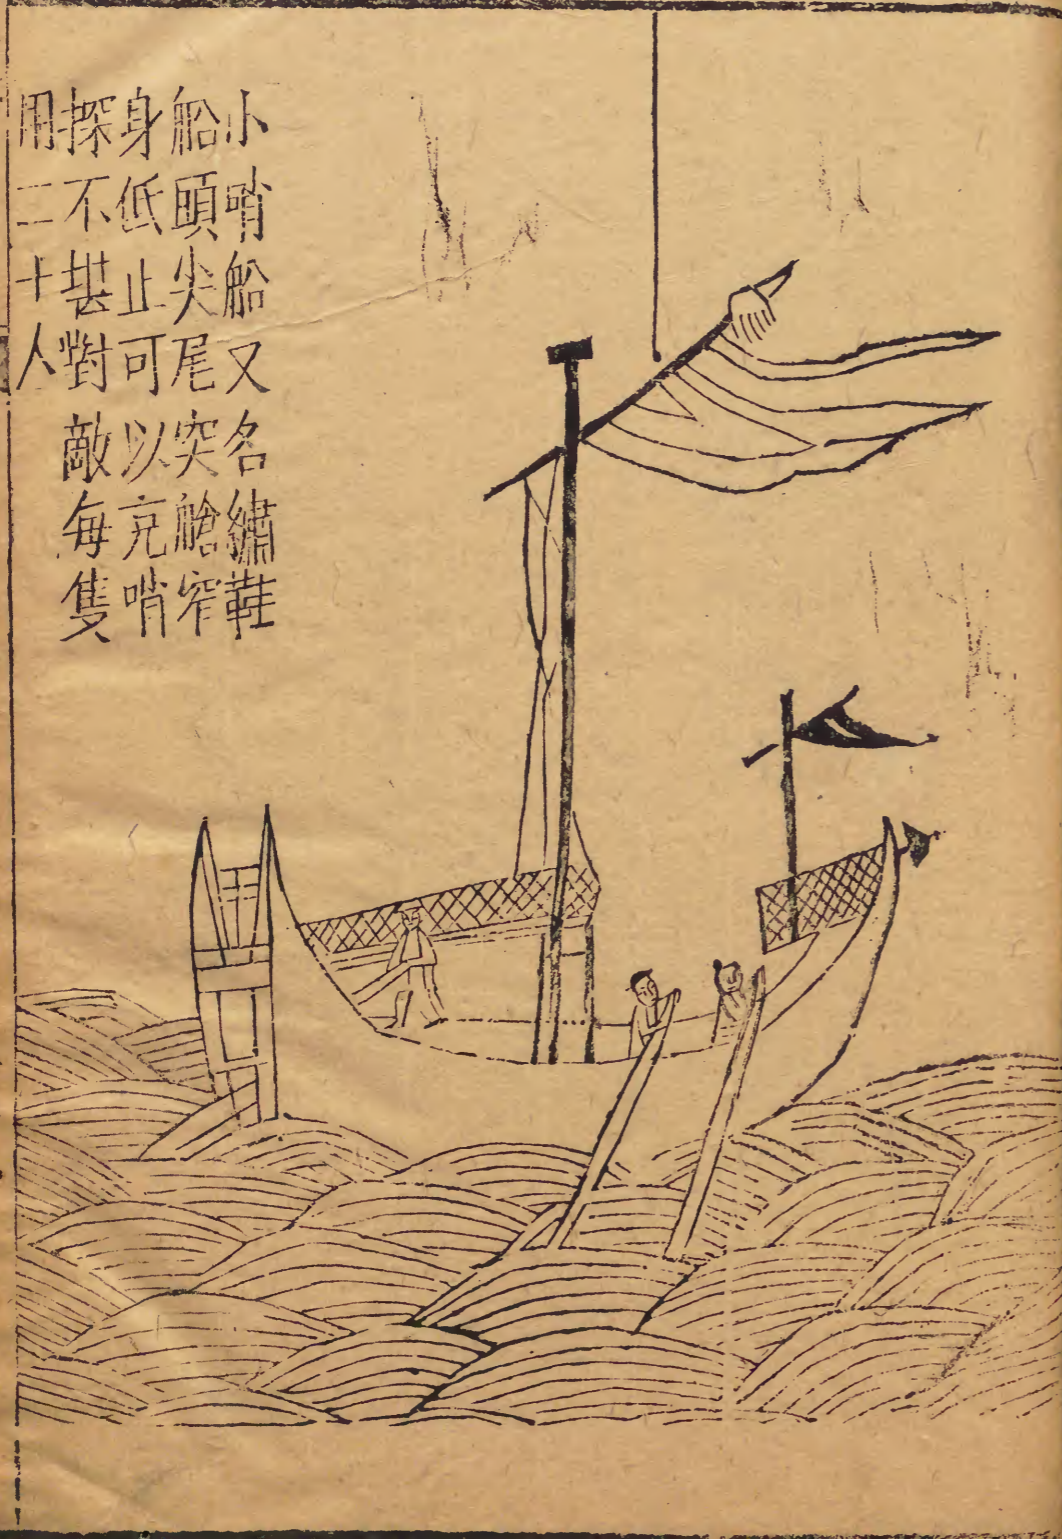 小哨船又名繡鞋
船頭尖尾突艙窄
身低止可以充哨
探不堪對敵每隻
用二十人